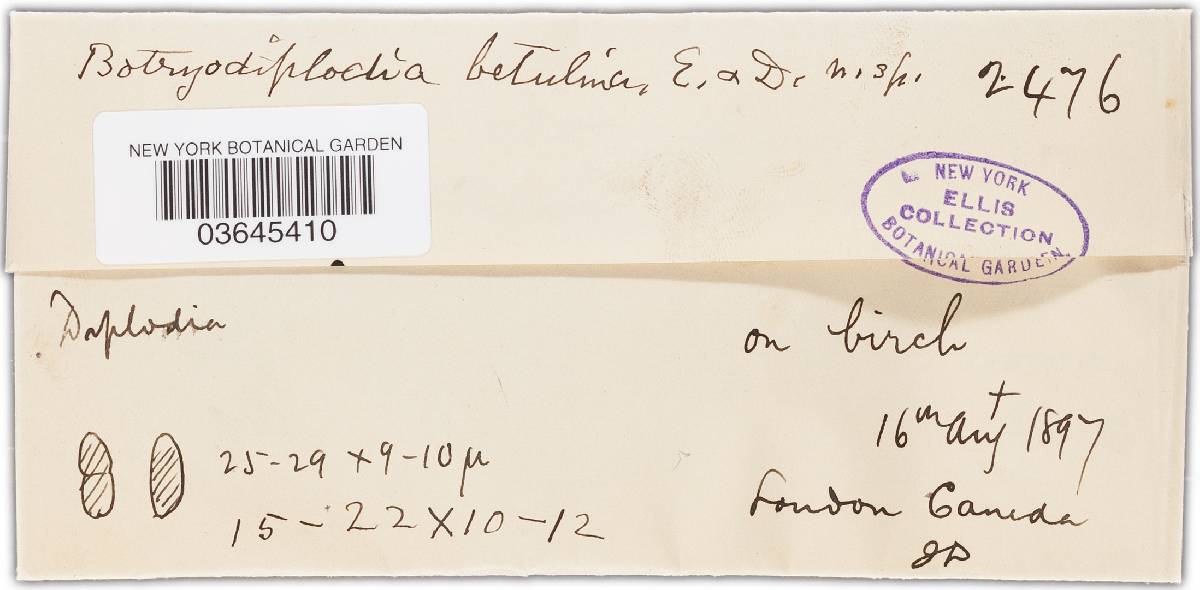 Botryodiplodia betulina, E. & D. n. sp. 2476
NEW YORK BOTANICAL GARDEN
03645410
NEW YORK
ELLIS
COLLECTION
BOTANICAL GARDEN.
Diplodia
on birch
16th Aug 1897
25-29 x 9-10 µ
15-22 x 10-12
London Canada
JD